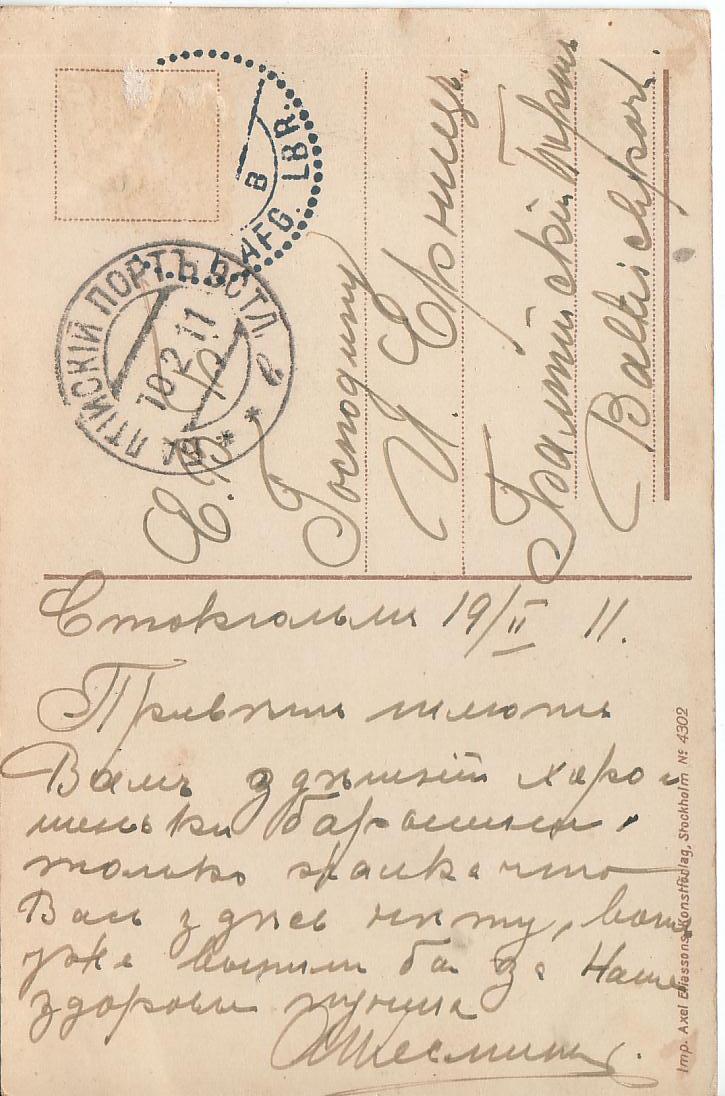 AFG. LBR.
B
БАЛТІЙСКІЙ ПОРТЪ ЭСТЛ.
10 2 11
Е. В.
Господину
И.
Балтійскій Портъ
Baltischport.
Стокгольмъ 19/II 11.
Привѣтъ шлютъ
Вамъ здѣшній хоро-
шеньки барышни,
только жалко что
Васъ здѣсь нѣту,
уже выпили бы за Наше
здоровье
Imp. Axel Eliassons Konstförlag, Stockholm Nº 4302